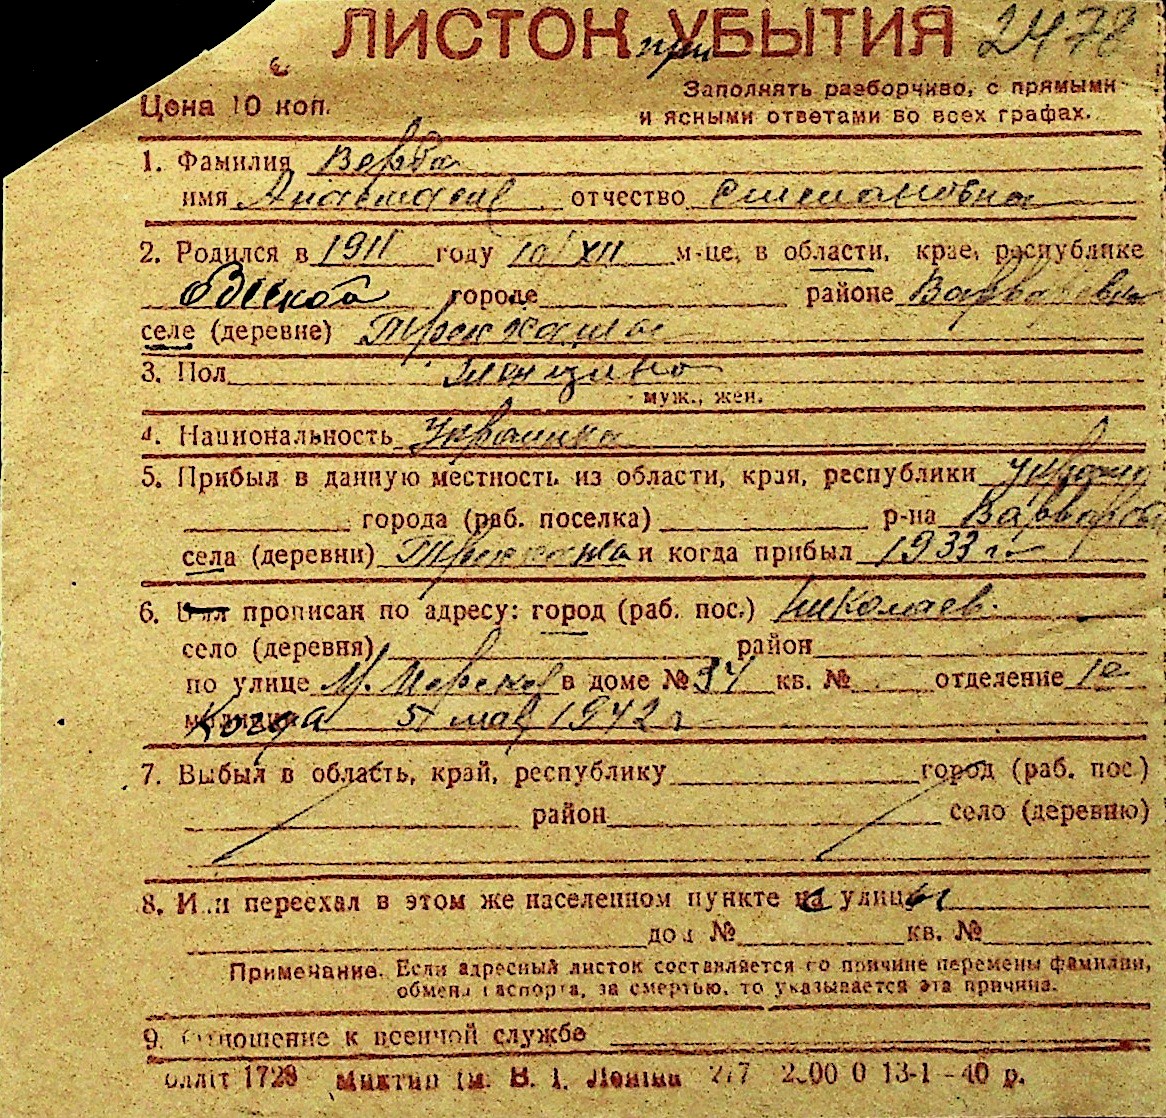 ЛИСТОК при УБЫТИЯ 2478
Заполнять разборчиво, с прямыми
Цена 10 коп.
и ясными ответами во всех графах.
1. Фамилия Верба
имя Анастасия отчество Степановна
2. Родился в 1911 году 10/XII м-це, в области, крае, республике
Одеской городе районе
селе (деревне)
3. Пол
муж., жен.
4. Национальность Украинка
5. Прибыл в данную местность из области, края, республики
города (раб. поселка) р-на
села (деревни) и когда прибыл 1933 г.
6. Был прописан по адресу: город (раб. пос.) Николаев.
село (деревня) район
по улице М. Морская в доме № 34 кв. № отделение 1е
милиции Когда 5 мая 1942 г
7. Выбыл в область, край, республику город (раб. пос.)
район село (деревню)
8. Или переехал в этом же населенном пункте с улицы
дом № кв. №
Примечание. Если адресный листок составляется по причине перемены фамилии,
обмена паспорта, за смертью, то указывается эта причина.
9. Отношение к военной службе
1728 им. В. І. Леніна 217 13-1-40 р.